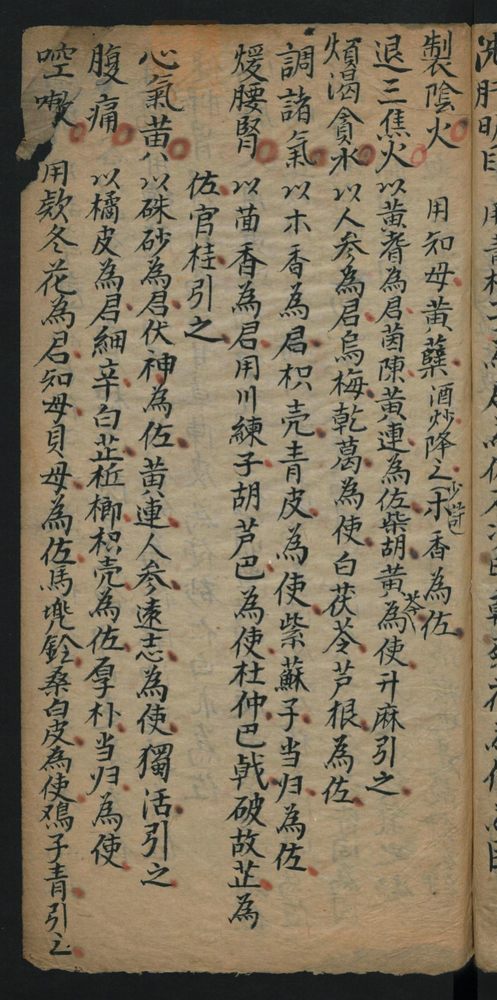 洗肝明目
製陰火 用知母黃蘖酒炒降之木香少許為佐
退三焦火以黃耆為君茵陳黃連為佐柴胡黃芩為使升麻引之
煩渴貪水以人参為君烏梅乾葛為使白茯苓芦根為佐
調諸氣以木香為君枳壳青皮為使紫蘇子当归為佐
煖腰腎以茴香為君用川練子胡芦巴為使杜仲巴戟破故芷為
佐官桂引之
心氣黃以硃砂為君伏神為佐黃連人参遠志為使獨活引之
腹痛以橘皮為君細辛白芷梹榔枳壳為佐厚朴当归為使
啌嗽 用欵冬花為君知母貝母為佐馬兠鈴桑白皮為使鳮子青引之